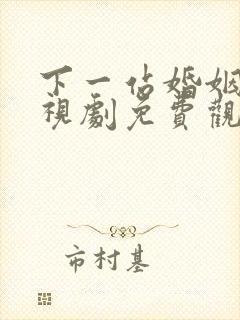 下一佔婚姻
視劇免費觀
市村基